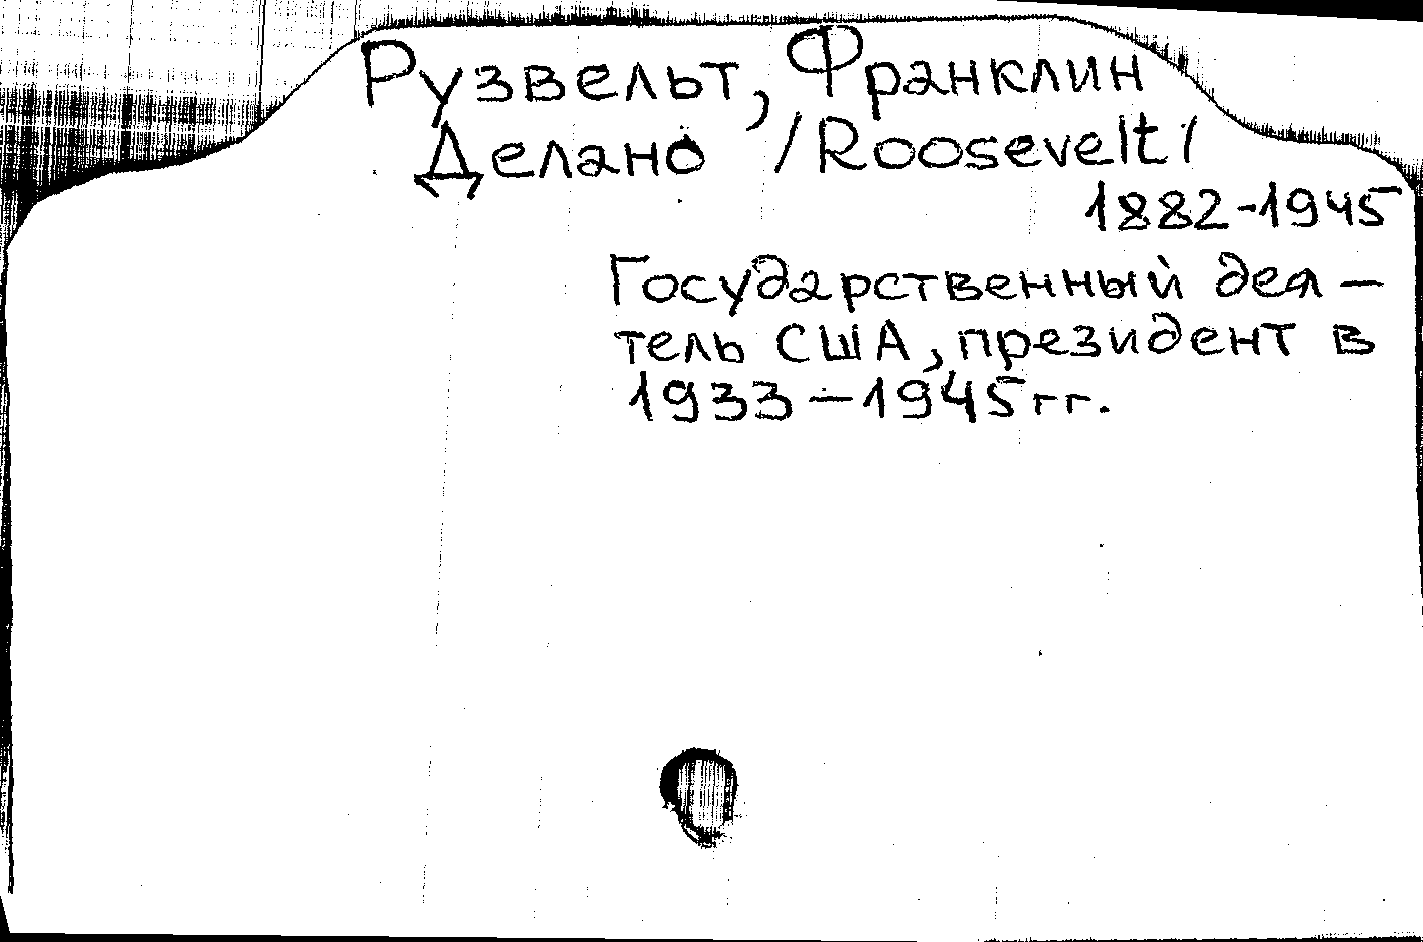 Рузвельт, Франклин
Делано /Roosevelt/
1882-1945
Государственный дея-
тель США, президент в
1933-1945 гг.